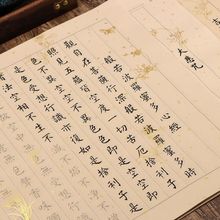 大悲咒
般若波羅蜜多心經
觀自在菩薩行深般若波羅蜜多時
照見五蘊皆空度一切苦厄捨利子
色不異空空不異色色即是空空即
是色受想行識亦復如是
法空相不生不